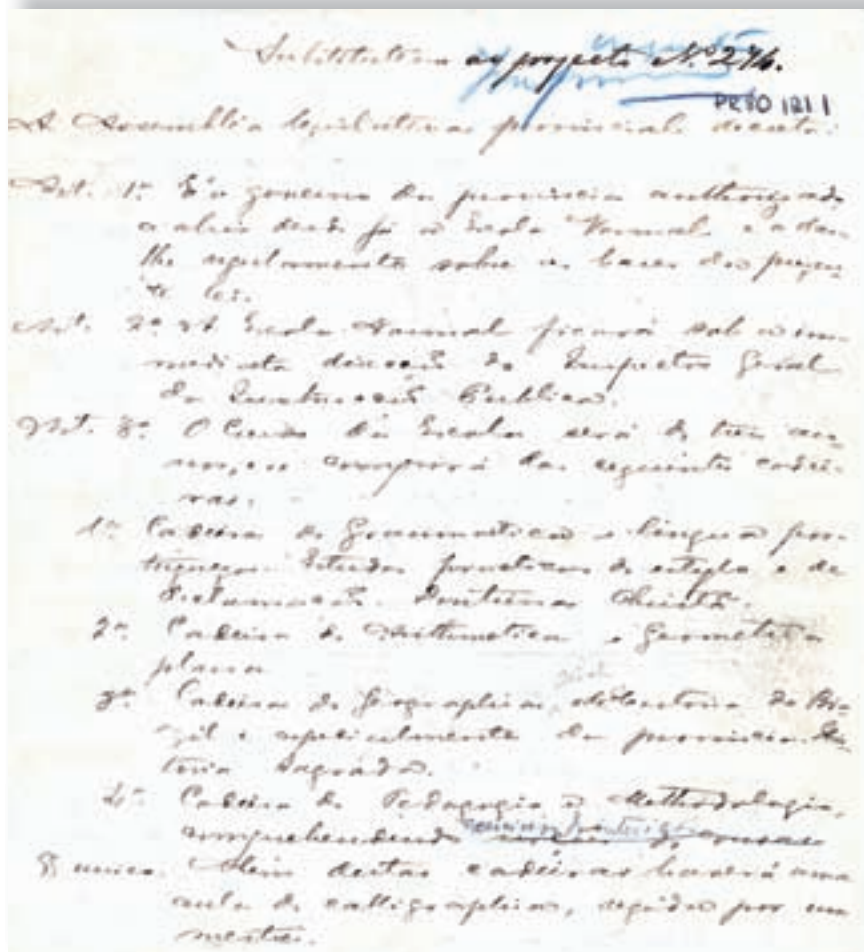 Substitutivo ao projecto N.º 276.
PR80 121 1
A Assembléa legislativa provincial decreta:
Art. 1º É o governo da provincia authorizado
a abrir desde já a Escola Normal e a dar-
lhe regulamento sobre as bases da presen-
te lei.
Art. 2º A Escola Normal ficará sob a im-
mediata direcção do Inspector Geral
da Instrucção Publica.
Art. 3º O Curso da Escola será de tres an-
nos, e se comporá das seguintes cadei-
ras.
1ª Cadeira de Grammatica e lingua por-
tugueza. Estudos praticos de estylo e de
declamação. Doutrina Christã.
2ª Cadeira de Arithmetica e Geometria
plana
3ª Cadeira de Geographia geral, e historia do Bra-
zil e especialmente da provincia. His-
toria Sagrada.
4ª Cadeira de Pedagogia e Methodologia,
comprehendendo
§ unico. Alem destas cadeiras haverá uma
aula de calligraphia, regida por um
mestre.